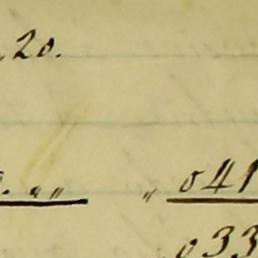 ,20.
. „ „ „ 041
033